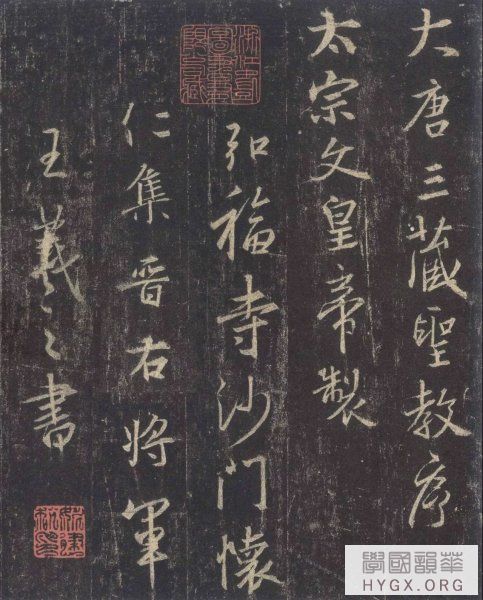 大唐三藏聖教序
太宗文皇帝製
弘福寺沙门懷
仁集晋右将軍
王羲之書
華韻國學
HYGX.ORG